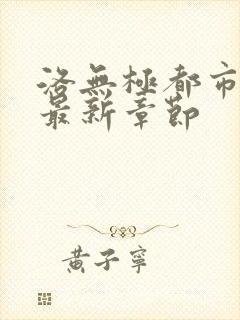 洛無極都市
最新章節
黃子寧